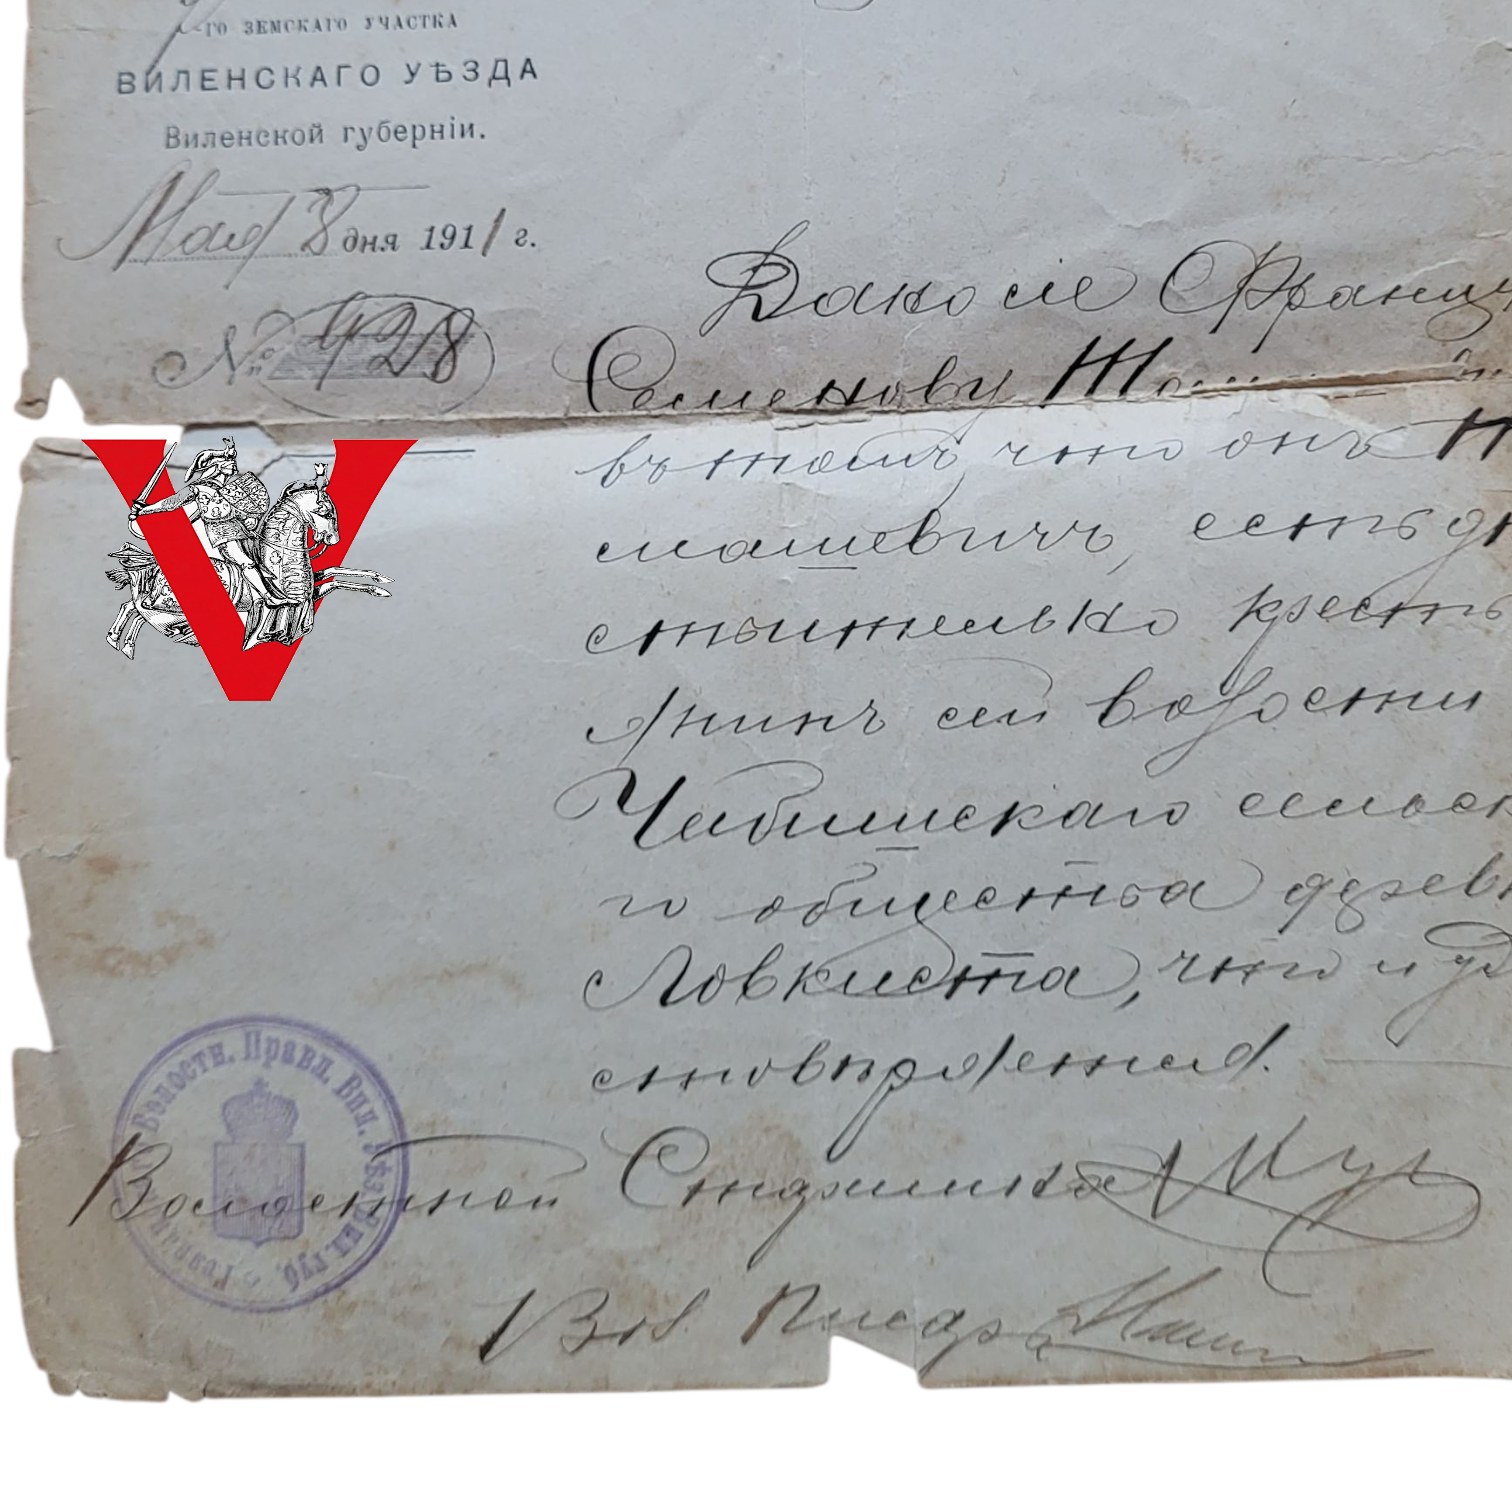 -го ЗЕМСКАГО УЧАСТКА
ВИЛЕНСКАГО УѢЗДА
Виленской губерніи.
Мая 8 дня 1911 г.
№ 428
Дано сіе Францы
Семенову
въ томъ, что онъ
машевичъ,
ствительно кресть
янинъ сей волости
го общества дерев
Ловкиста, что и уд
стовѣряется.
Волостной Старшина
Вол. Писарь
Волостн. Правл. Вил. Уѣзда Вил. Губ.
V